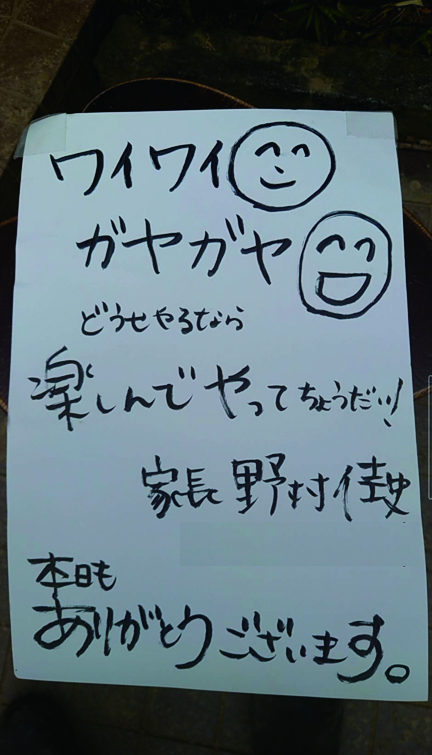 ワイワイ
ガヤガヤ
どうせやるなら
楽しんでやってちょうだい!
家長 野村佳史
本日も
ありがとうございます。